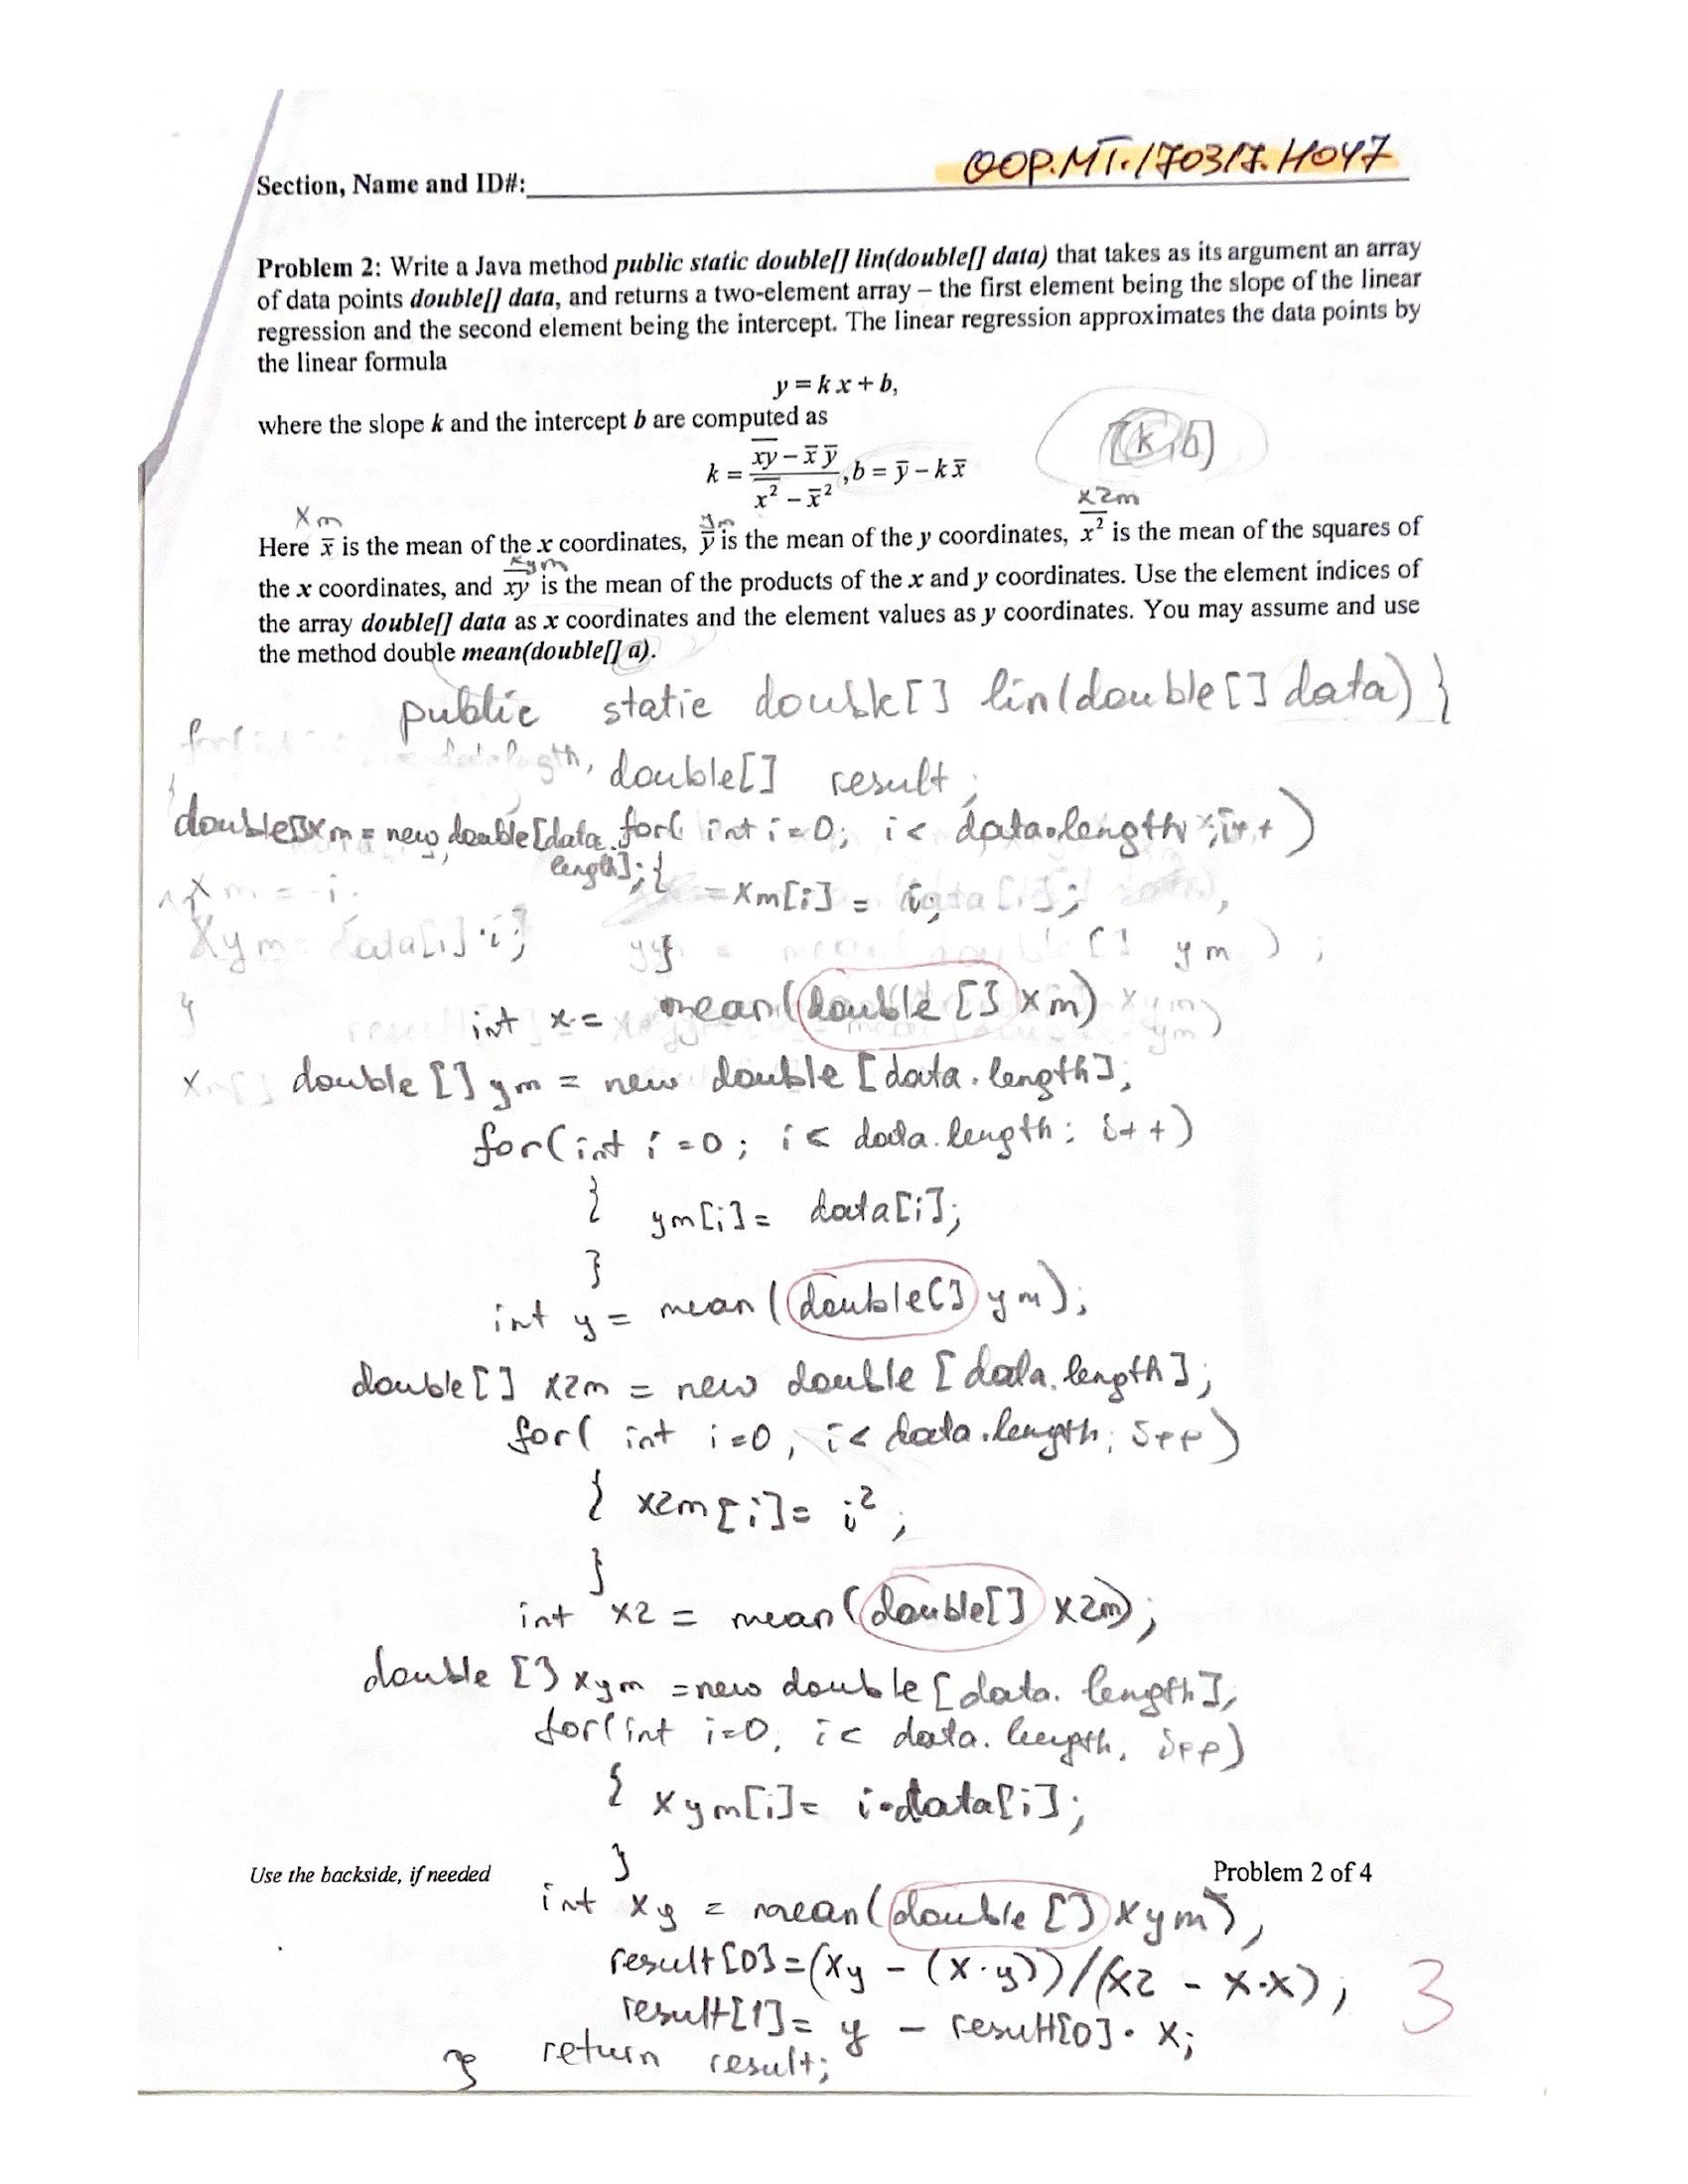 OOP.MT.170317.H047
Section, Name and ID#:
Problem 2: Write a Java method public static double[] lin(double[] data) that takes as its argument an array
of data points double[] data, and returns a two-element array – the first element being the slope of the linear
regression and the second element being the intercept. The linear regression approximates the data points by
the linear formula
y = k x + b,
where the slope k and the intercept b are computed as
[k, b]
k = (x̅y̅ – x̅ y̅) / (x²̅ – x̅²), b = y̅ – k x̅
xm
ym
x2m
Here x̅ is the mean of the x coordinates, y̅ is the mean of the y coordinates, x²̅ is the mean of the squares of
xym
the x coordinates, and x̅y̅ is the mean of the products of the x and y coordinates. Use the element indices of
the array double[] data as x coordinates and the element values as y coordinates. You may assume and use
the method double mean(double[] a).
public static double[] lin(double[] data) {
double[] result;
double[] xm = new double[data.length]; for( int i=0; i< data.length; i++)
{ xm[i] = i;
}
int x = mean(double [] xm)
double [] ym = new double [data.length];
for(int i=0; i< data.length; i++)
{ ym[i]= data[i];
}
int y = mean(double[] ym);
double[] x2m = new double [data.length];
for( int i=0, i< data.length; ipp)
{ x2m[i]= i²;
}
int x2 = mean(double[] x2m);
double [] xym =new double [data.length],
for(int i=0, i< data.length, ipp)
{ xym[i]= i·data[i];
}
Use the backside, if needed
Problem 2 of 4
int xy = mean(double [] xym),
result[0]=(xy - (x·y))/(x2 - x·x);
3
result[1]= y - result[0]· x;
return result;
}